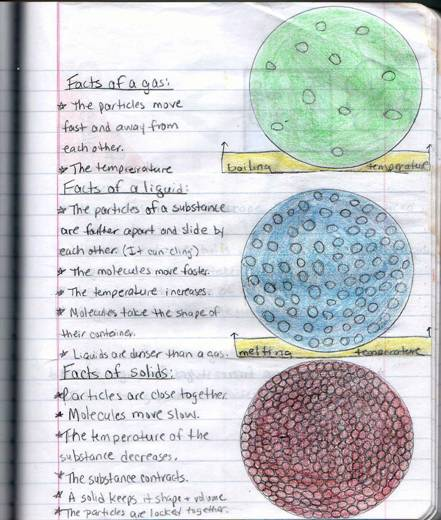 Facts of a gas:
* The particles move
fast and away from
each other.
* The tempreirature
boiling temperature
Facts of a liquid:
* The particles of a substance
are farther apart and slide by
each other. (It can cling)
* The molecules move faster.
* The temperature increases.
* Molecules take the shape of
their container.
* Liquids are denser than a gas.
melting temperature
Facts of solids:
* Particles are close together.
* Molecules move slow.
* The temperature of the
substance decreases.
* The substance contracts.
* A solid keeps it shape + volume
* The particles are locked together.